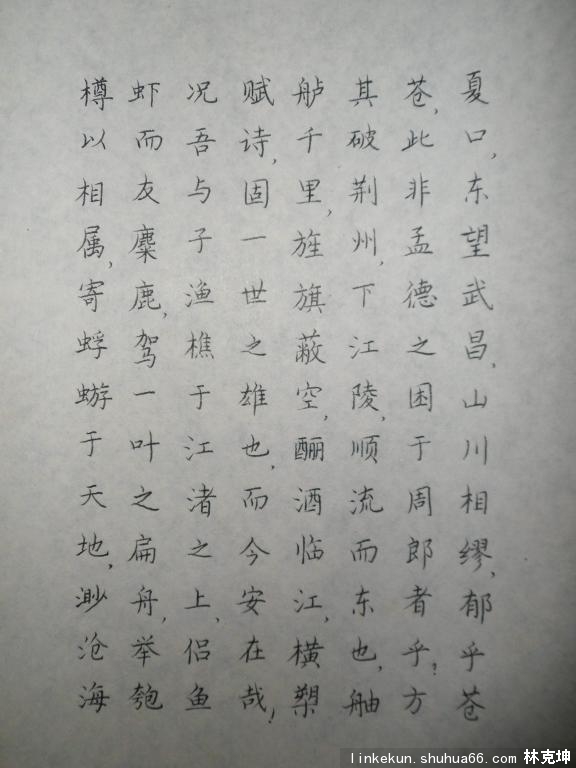 夏口,东望武昌,山川相缪,郁乎苍
苍,此非孟德之困于周郎者乎?方
其破荆州,下江陵,顺流而东也,舳
舻千里,旌旗蔽空,酾酒临江,横槊
赋诗,固一世之雄也,而今安在哉!
况吾与子渔樵于江渚之上,侣鱼
虾而友麋鹿,驾一叶之扁舟,举匏
樽以相属,寄蜉蝣于天地,渺沧海
linkekun.shuhua66.com 林克坤